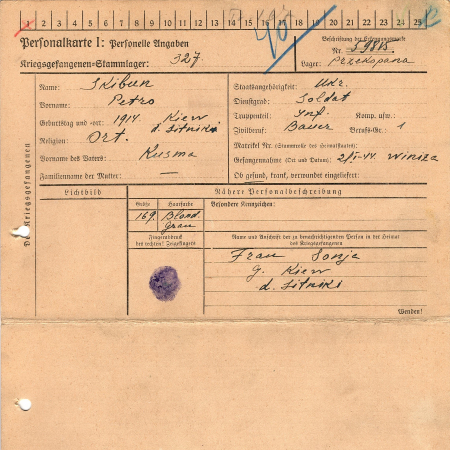 1 2 3 4 5 6 7 8 9 10 11 12 13 14 15 16 17 18 19 20 21 22 23 24 25
Personalkarte I: Personelle Angaben
Kriegsgefangenen=Stammlager: 327.
Beschriftung der Erkennungsmarke
Nr. 59815
Lager: Przekopana
Des Kriegsgefangenen
Name: Skibun
Vorname: Petro
Geburtstag und -ort: 1914. Kiew
d. Sitniki
Religion: Ort.
Vorname des Vaters: Kusma
Familienname der Mutter: —
Staatsangehörigkeit: Ukr.
Dienstgrad: Soldat
Truppenteil: Inf. Komp. usw.:
Zivilberuf: Bauer Berufs-Gr.: 1
Matrikel Nr. (Stammrolle des Heimatstaates):
Gefangennahme (Ort und Datum): Winiza
Ob gesund, krank, verwundet eingeliefert:
Lichtbild
Nähere Personalbeschreibung
Größe Haarfarbe Besondere Kennzeichen:
169. Blond
Grau
Fingerabdruck
des rechten! Zeigefingers
Name und Anschrift der zu benachrichtigenden Person in der Heimat
des Kriegsgefangenen
Frau Sonja
g. Kiew
d. Sitniki
Wenden!